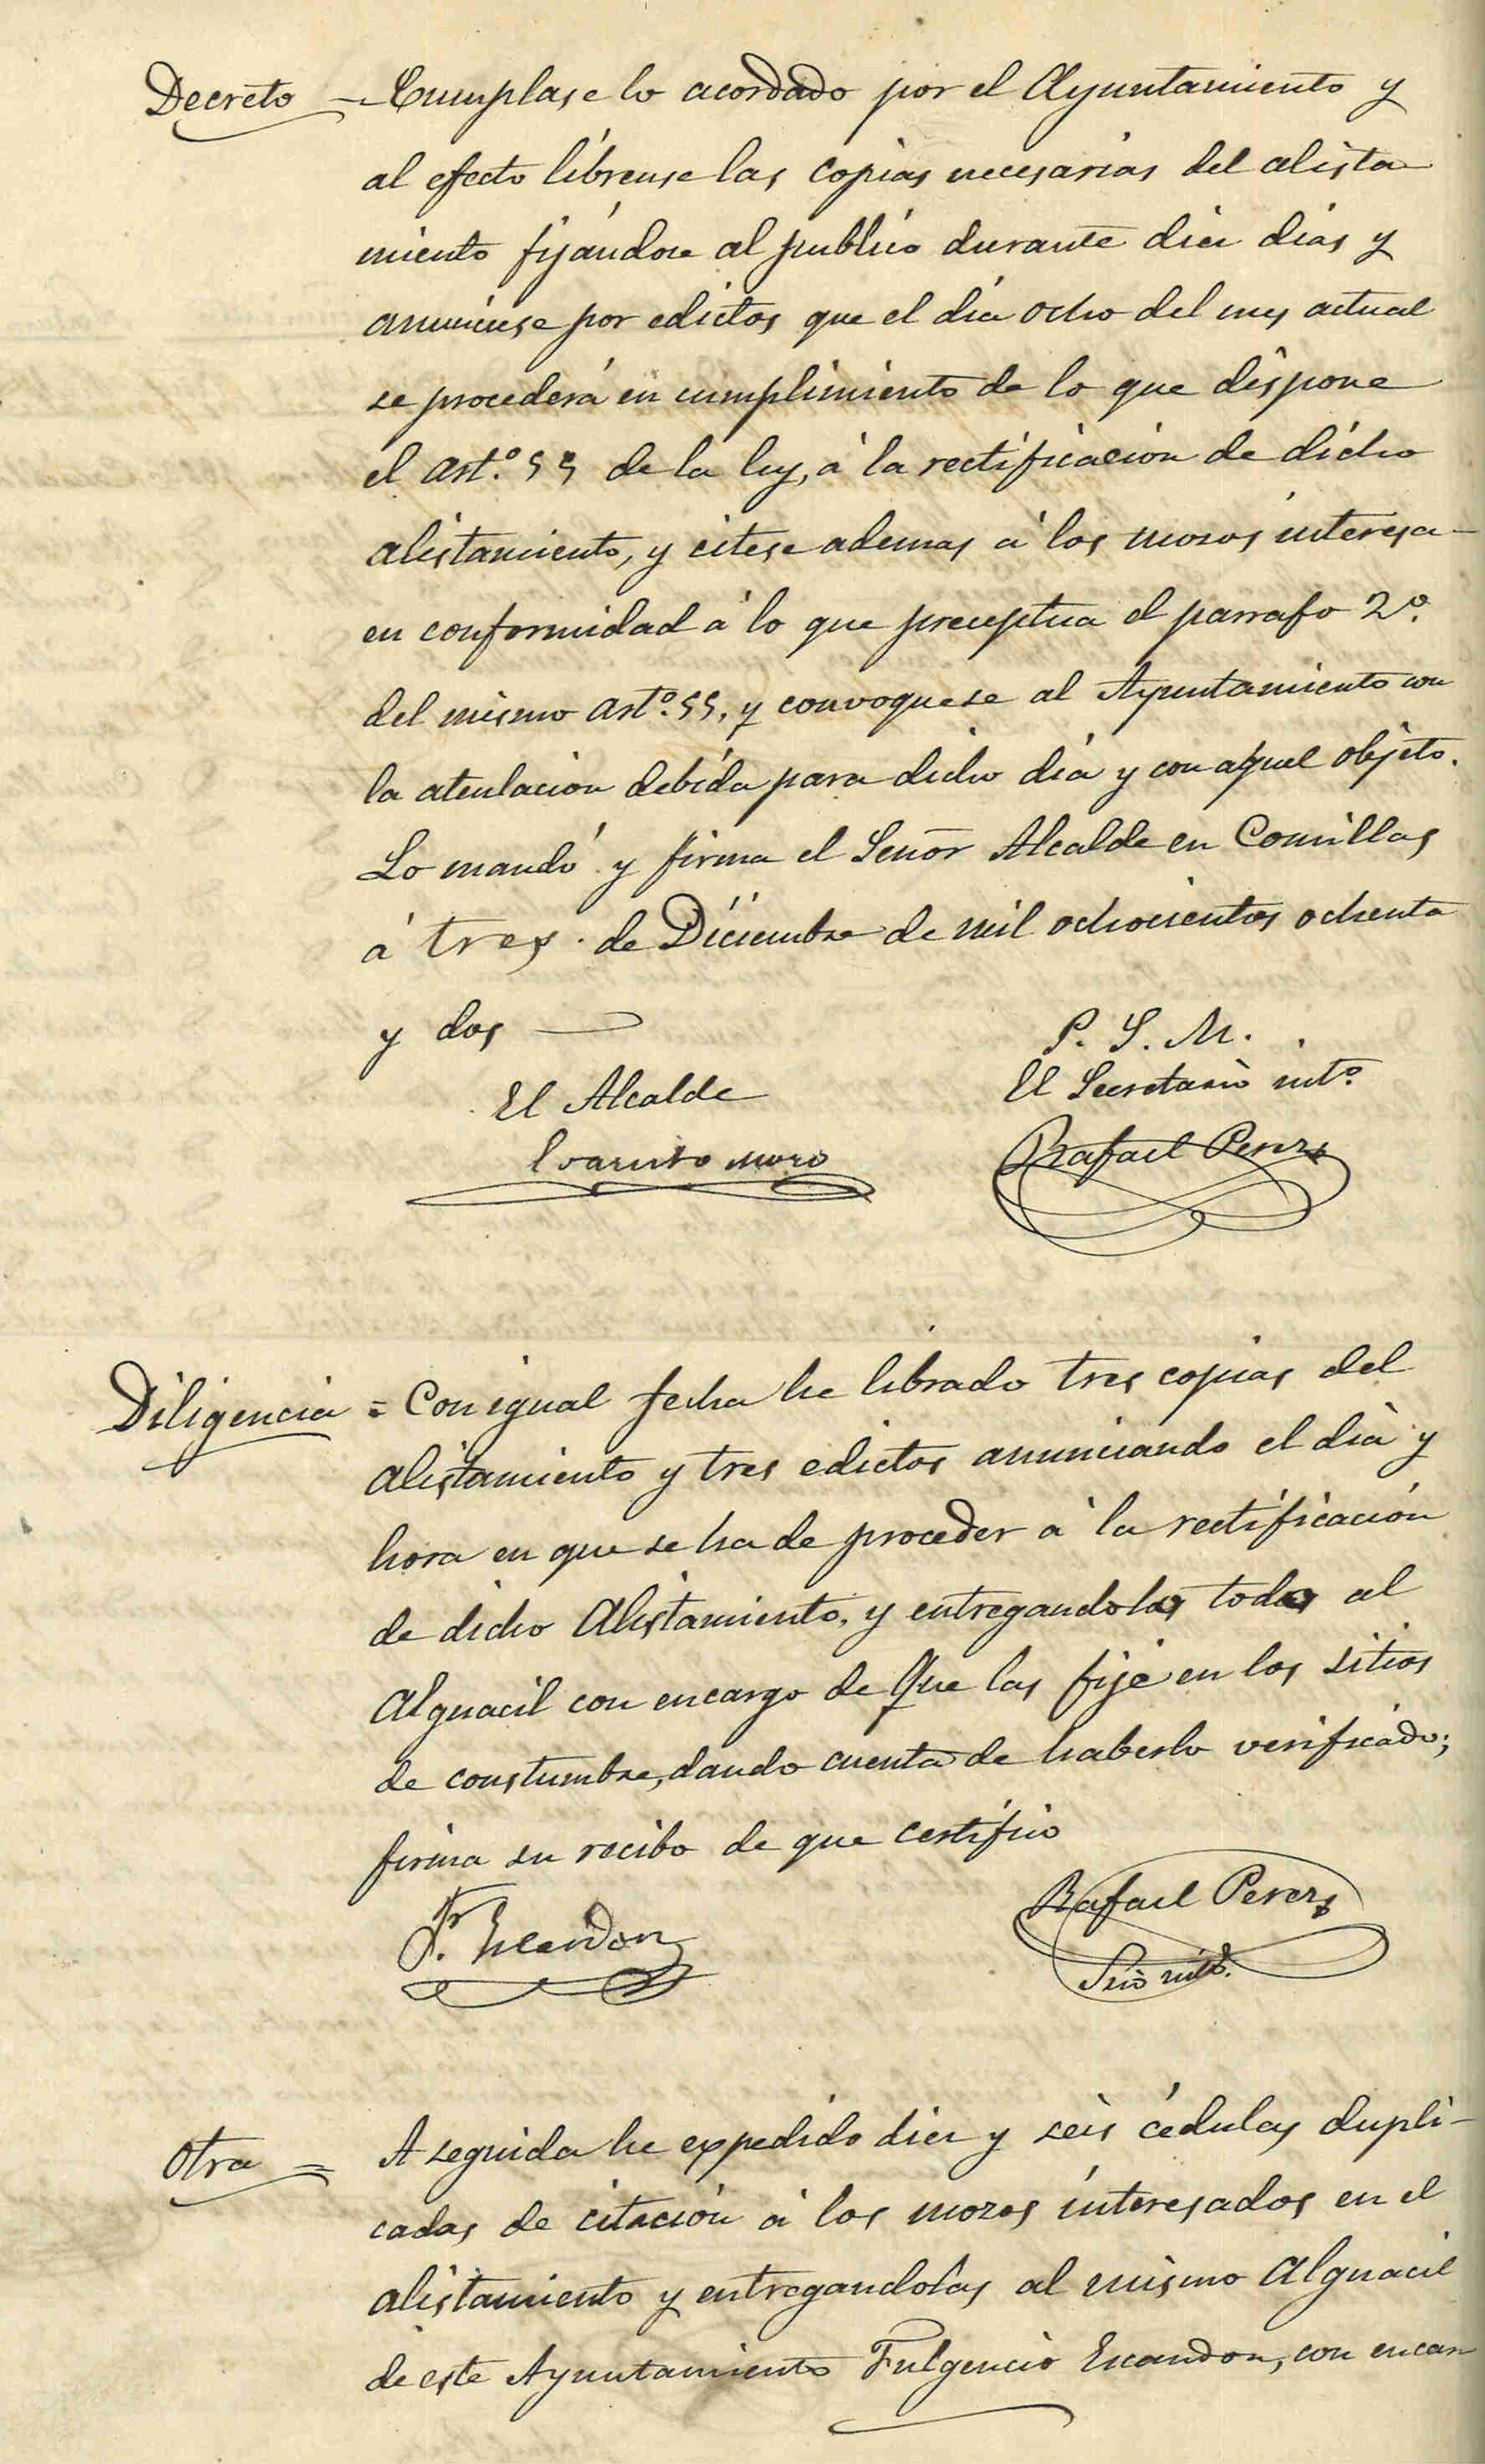 Decreto — Cumplase lo acordado por el Ayuntamiento y
al efecto líbrense las copias necesarias del alista
miento fijándose al publico durante diez dias y
anunciese por edictos que el dia ocho del mes actual
se procederá en cumplimiento de lo que dispone
el art.º 55 de la ley, á la rectificacion de dicho
alistamiento, y citese ademas á los mozos interesa-
en conformidad á lo que preceptua el parrafo 2º.
del mismo artº. 55, y convoquese al Ayuntamiento con
la atenlacion debida para dicho dia y con aquel objeto.
Lo mandó y firma el Señor Alcalde en Comillas
á tres de Diciembre de mil ochocientos ochenta
y dos —
P. S. M.
El Alcalde
El Secretario intº
Evaristo Moro
Rafael Perez
Diligencia = Con igual fecha he librado tres copias del
alistamiento y tres edictos anunciando el dia y
hora en que se ha de proceder á la rectificación
de dicho Alistamiento, y entregandolas todas al
Alguacil con encargo de que las fije en los sitios
de constumbre, dando cuenta de haberlo verificado;
firma su recibo de que certifico
F. Escandon
Rafael Perez
Srio intº.
Otra = A seguida he expedido diez y seis cédulas dupli-
cadas de citación á los mozos interesados en el
alistamiento y entregandolas al mismo Alguacil
de este Ayuntamiento Fulgencio Escandon, con encar